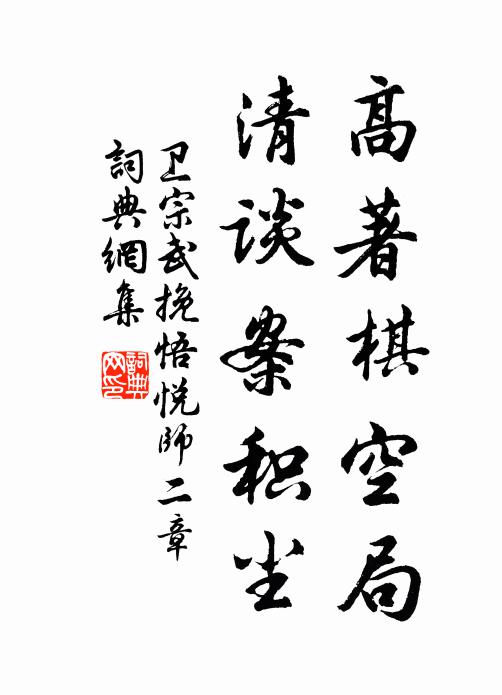 高著棋空局
清谈案积尘
卫宗武挽悟悦師二章
詞典網集
詞典网印